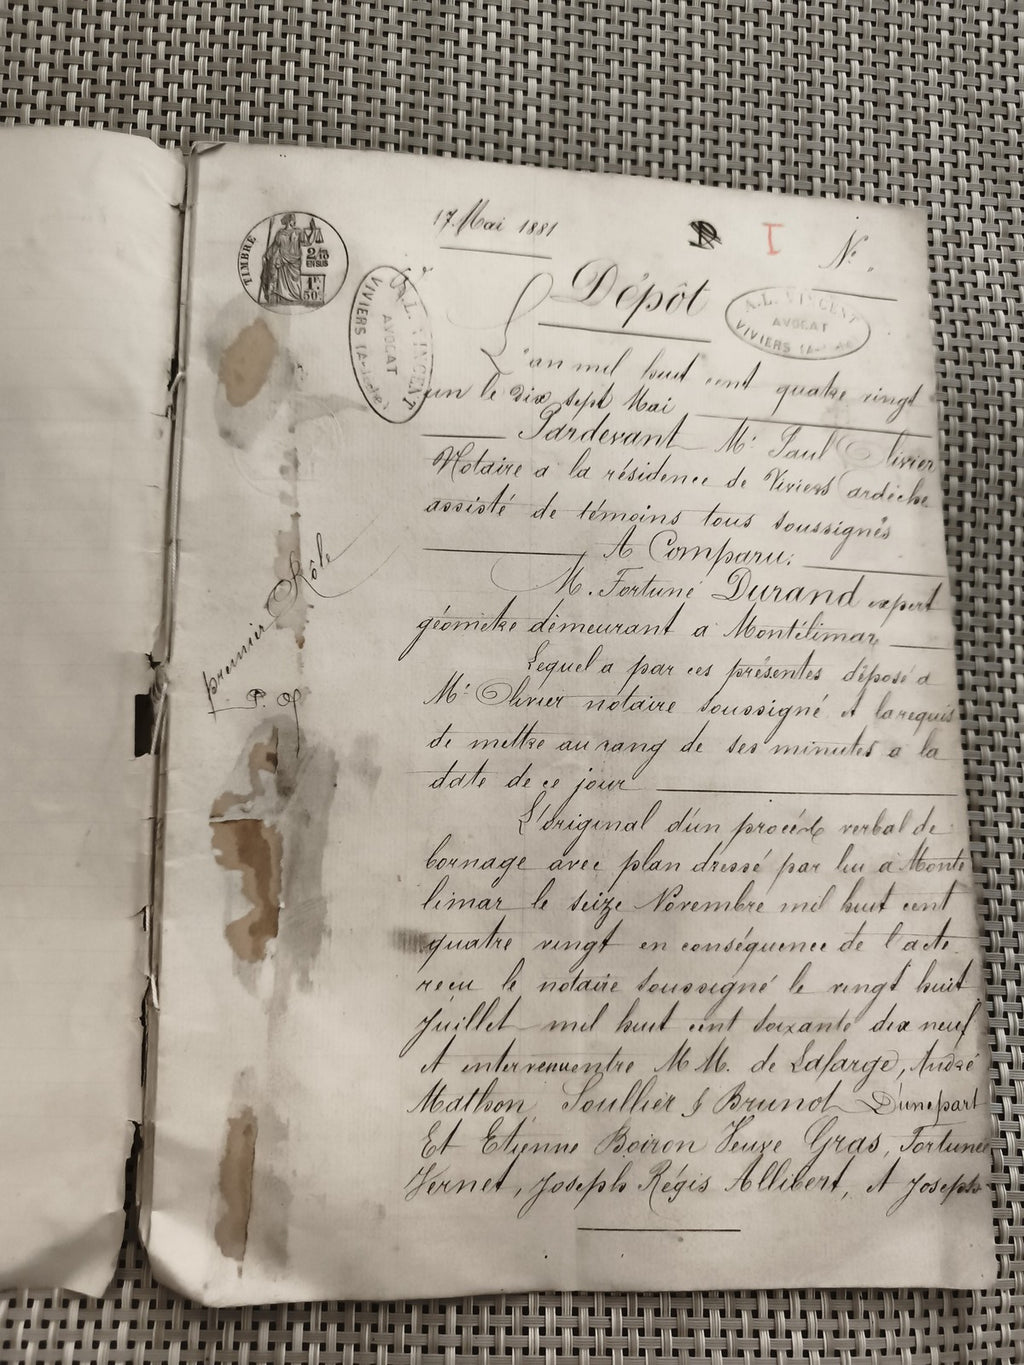 17 Mai 1881
I
N°.
TIMBRE
2/10
EN SUS
1F
50c
Dépôt
A.L. VINCENT
AVOCAT
VIVIERS (A
A.L. VINCENT
AVOCAT
VIVIERS (A
L'an mil huit cent quatre vingt
un le dix sept Mai
Pardevant Me Paul Olivier
Notaire a la résidence de Viviers ardèche
assisté de témoins tous soussignés
A Comparu:
M. Fortuné Durand expert
géometre demeurant a Montélimar
Lequel a par ces présentes déposé a
Me Olivier notaire soussigné et la requis
de mettre au rang de ses minutes a la
date de ce jour
L'original d'un procés verbal de
bornage avec plan dressé par lui a Monte
limar le seize Novembre mil huit cent
quatre vingt en conséquence de l'acte
recu le notaire soussigné le vingt huit
Juillet mil huit cent soixante dix neuf
et intervenu entre MM. de Lafarge, André
Mathon Soullier & Brunot D'une part
Et Etienne Boiron Veuve Gras, Fortuné
Vernet, Joseph Régis Allibert, et Joseph
premier Rôle
P. O